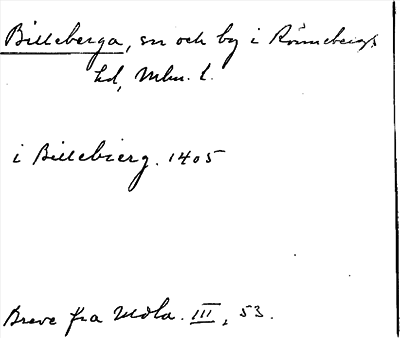 Billeberga, sn och by i Rönnebergs
hd, Mlm. l.
i Billebierg. 1405
Breve fra Udla. III, 53.